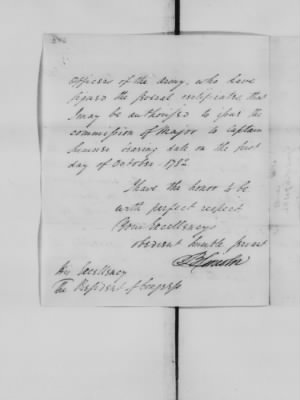 officers of the Army, who have
signed the several certificates that
I may be authorised to issue the
commission of Major to Captain
bearing date on the first
day of October 1782
I have the honor to be
with perfect respect
Your Excellency's
obedient humble servant
B Lincoln
His Excellency
The President of Congress